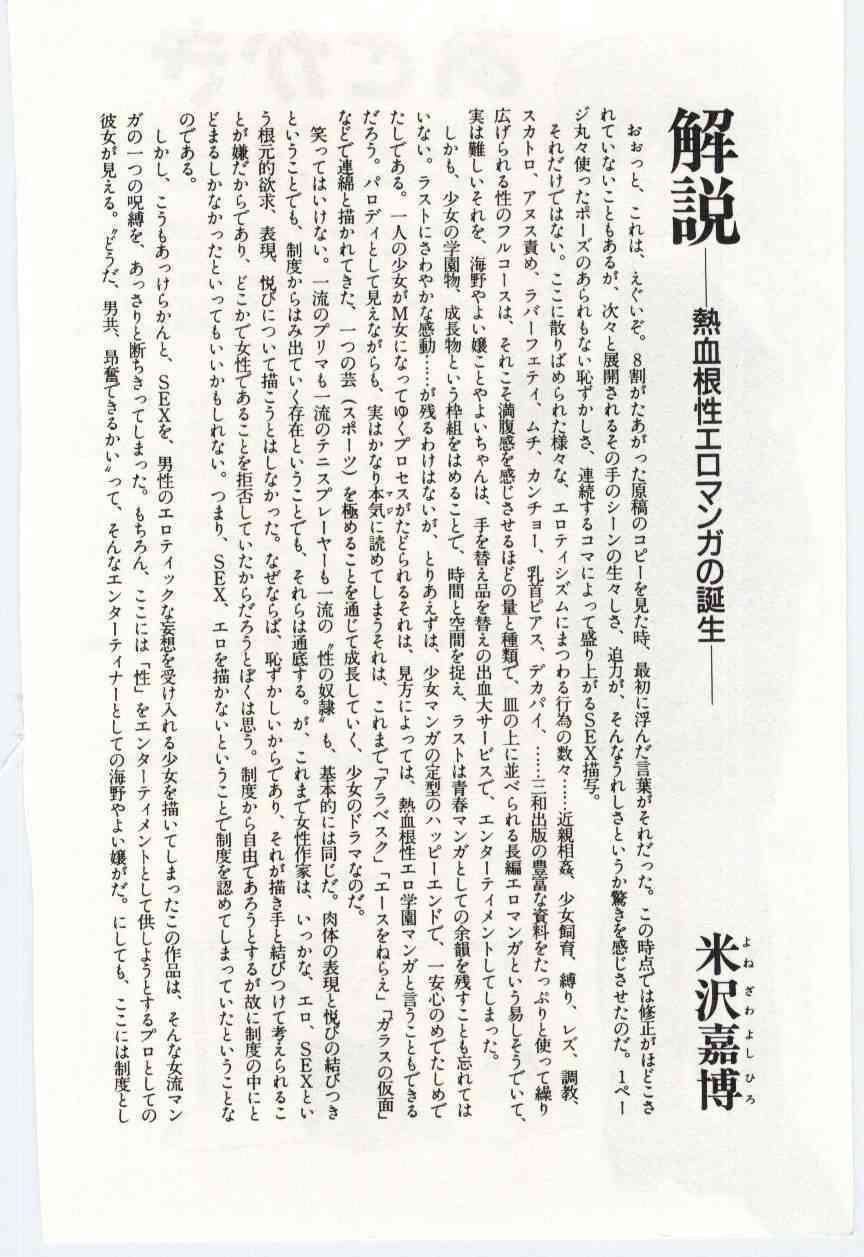 解説——熱血根性エロマンガの誕生——
米沢嘉博
よねざわよしひろ
おぉっと、これは、えぐいぞ。8割がたあがった原稿のコピーを見た時、最初に浮んだ言葉がそれだった。この時点では修正がほどこさ
れていないこともあるが、次々と展開されるその手のシーンの生々しさ、迫力が、そんなうれしさというか驚きを感じさせたのだ。1ペー
ジ丸々使ったポーズのあられもない恥ずかしさ、連続するコマによって盛り上がるSEX描写。
それだけではない。ここに散りばめられた様々な、エロティシズムにまつわる行為の数々……近親相姦、少女飼育、縛り、レズ、調教、
スカトロ、アヌス責め、ラバーフェティ、ムチ、カンチョー、乳首ピアス、デカパイ、……三和出版の豊富な資料をたっぷりと使って繰り
広げられる性のフルコースは、それこそ満腹感を感じさせるほどの量と種類で、皿の上に並べられる長編エロマンガという易しそうでいて、
実は難しいそれを、海野やよい嬢ことやよいちゃんは、手を替え品を替えの出血大サービスで、エンターティメントしてしまった。
しかも、少女の学園物、成長物という枠組をはめることで、時間と空間を捉え、ラストは青春マンガとしての余韻を残すことも忘れては
いない。ラストにさわやかな感動……が残るわけはないが、とりあえずは、少女マンガの定型のハッピーエンドで、一安心のめでたしめで
たしである。一人の少女がM女になってゆくプロセスがたどられるそれは、見方によっては、熱血根性エロ学園マンガと言うこともできる
だろう。パロディとして見えながらも、実はかなり本気に読めてしまうそれは、これまで「アラベスク」「エースをねらえ」「ガラスの仮面」
マジ
などで連綿と描かれてきた、一つの芸(スポーツ)を極めることを通じて成長していく、少女のドラマなのだ。
笑ってはいけない。一流のプリマも一流のテニスプレーヤーも一流の〝性の奴隷〟も、基本的には同じだ。肉体の表現と悦びの結びつき
ということでも、制度からはみ出ていく存在ということでも、それらは通底する。が、これまで女性作家は、いっかな、エロ、SEXとい
う根元的欲求、表現、悦びについて描こうとはしなかった。なぜならば、恥ずかしいからであり、それが描き手と結びつけて考えられるこ
とが嫌だからであり、どこかで女性であることを拒否していたからだろうとぼくは思う。制度から自由であろうとするが故に制度の中にと
どまるしかなかったといってもいいかもしれない。つまり、SEX、エロを描かないということで制度を認めてしまっていたということな
のである。
しかし、こうもあっけらかんと、SEXを、男性のエロティックな妄想を受け入れる少女を描いてしまったこの作品は、そんな女流マン
ガの一つの呪縛を、あっさりと断ちきってしまった。もちろん、ここには「性」をエンターティメントとして供しようとするプロとしての
彼女が見える。〝どうだ、男共、昂奮できるかい〟って、そんなエンターティナーとしての海野やよい嬢がだ。にしても、ここには制度とし